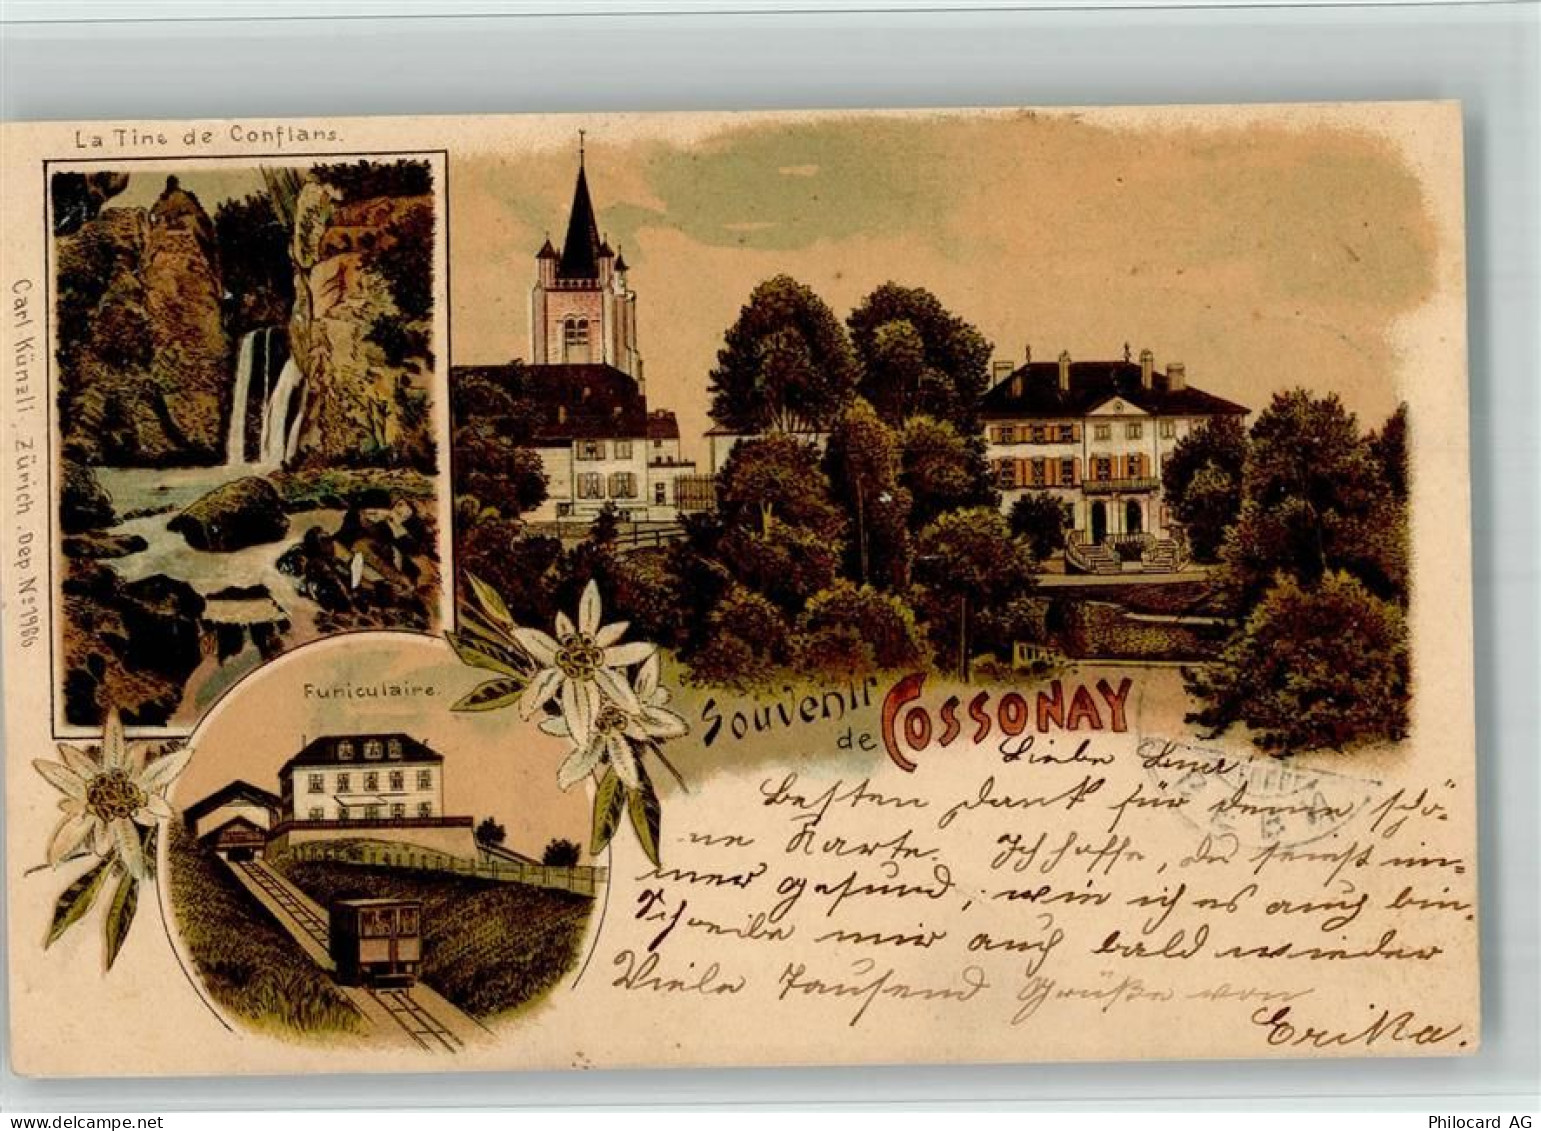 La Tine de Conflans.
Carl Künzli, Zürich. Dep. No: 1986
Funiculaire.
Souvenir
de COSSONAY
Liebe
Besten Dank für deine schö-
ne Karte. Ich hoffe, du seiest im-
mer gesund, wie ich es auch bin.
Schreibe mir auch bald wieder
Viele Tausend Grüße von
Erika.
Philocard AG